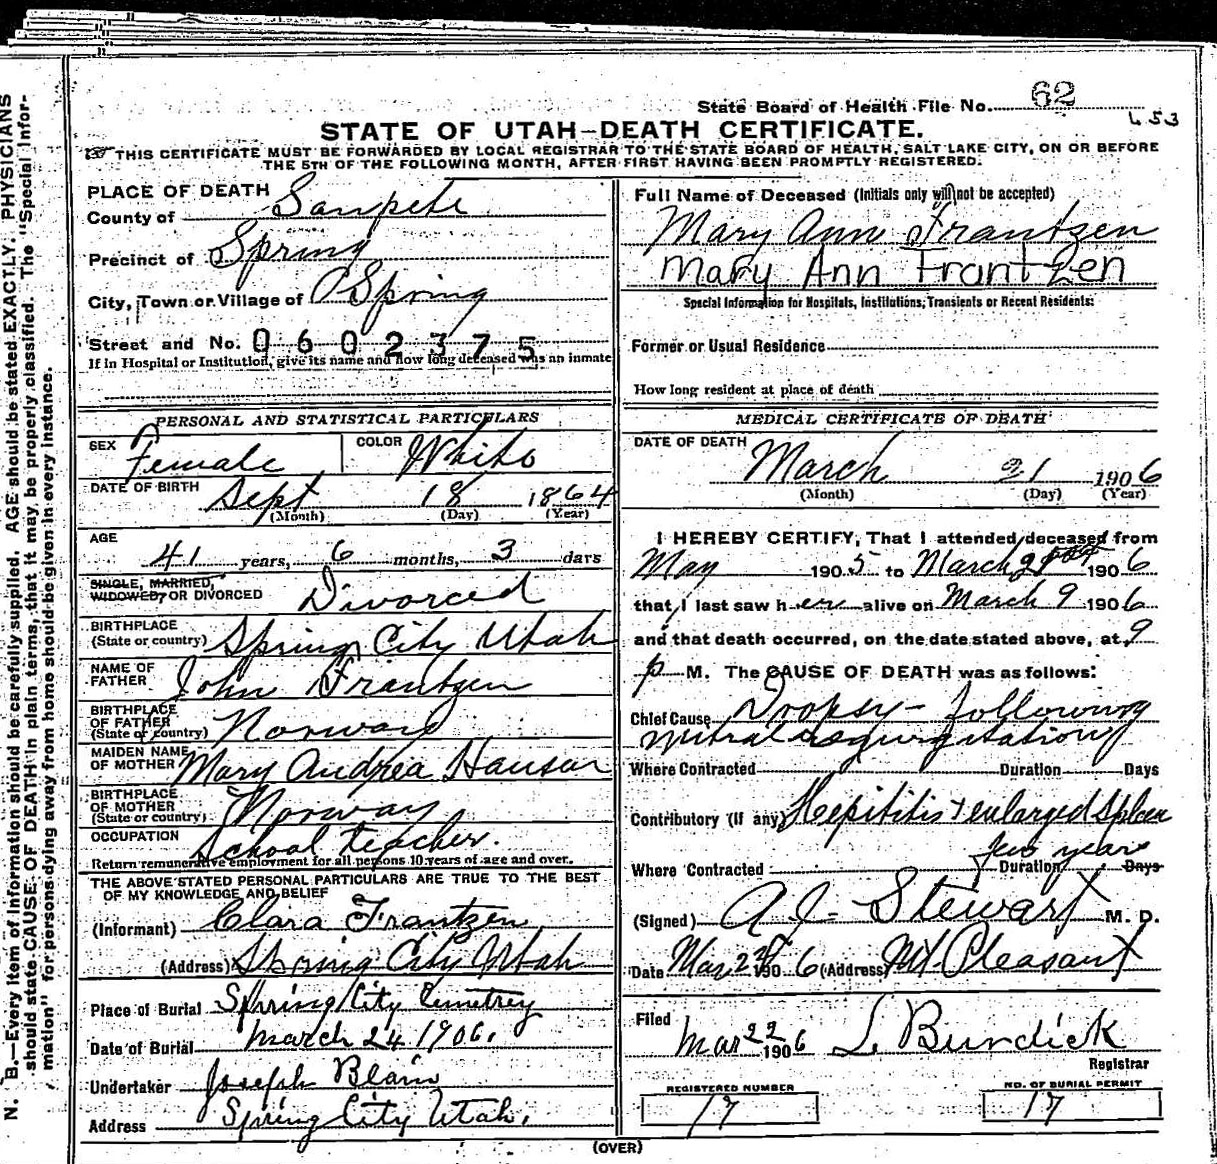 State Board of Health File No. 62
653
STATE OF UTAH—DEATH CERTIFICATE.
THIS CERTIFICATE MUST BE FORWARDED BY LOCAL REGISTRAR TO THE STATE BOARD OF HEALTH, SALT LAKE CITY, ON OR BEFORE
THE 5TH OF THE FOLLOWING MONTH, AFTER FIRST HAVING BEEN PROMPTLY REGISTERED.
N. B.—Every item of Information should be carefully supplied. AGE should be stated EXACTLY. PHYSICIANS
should state CAUSE OF DEATH in plain terms, that it may be properly classified. The "Special Infor-
mation" for persons dying away from home should be given in every instance.
PLACE OF DEATH
County of Sanpete
Precinct of Spring
City, Town or Village of Spring
Street and No. 0602375
If in Hospital or Institution, give its name and how long deceased was an inmate
PERSONAL AND STATISTICAL PARTICULARS
SEX Female COLOR White
DATE OF BIRTH Sept 18 1864
(Month) (Day) (Year)
AGE
41 years, 6 months, 3 days
SINGLE, MARRIED,
WIDOWED, OR DIVORCED Divorced
BIRTHPLACE
(State or country) Spring City Utah
NAME OF
FATHER John Frantzen
BIRTHPLACE
OF FATHER
(State or country) Norway
MAIDEN NAME
OF MOTHER Mary Andrea Hansen
BIRTHPLACE
OF MOTHER
(State or country) Norway
OCCUPATION School teacher.
Return remunerative employment for all persons 10 years of age and over.
THE ABOVE STATED PERSONAL PARTICULARS ARE TRUE TO THE BEST
OF MY KNOWLEDGE AND BELIEF
(Informant) Clara Frantzen
(Address) Spring City Utah
Place of Burial Spring City Cemetrey
Date of Burial March 24 1906.
Undertaker Joseph Blain
Address Spring City Utah.
Full Name of Deceased (Initials only will not be accepted)
Mary Ann Frantzen
Mary Ann Frantzen
Special Information for Hospitals, Institutions, Transients or Recent Residents:
Former or Usual Residence
How long resident at place of death
MEDICAL CERTIFICATE OF DEATH
DATE OF DEATH March 21 1906
(Month) (Day) (Year)
I HEREBY CERTIFY, That I attended deceased from
May 1905 to March 1906
that I last saw her alive on March 9 1906
and that death occurred, on the date stated above, at 9
p M. The CAUSE OF DEATH was as follows:
Chief Cause Dropsy - following
mitral regurgitation
Where Contracted Duration Days
Contributory (If any) Hepititis + enlarged spleen
few years
Where Contracted Duration Days
(Signed) A J Stewart M. D.
Date Mar 1906 (Address) Mt Pleasant
Filed
Mar 22 1906 L. Burdick
Registrar
REGISTERED NUMBER
17
NO. OF BURIAL PERMIT
17
(OVER)